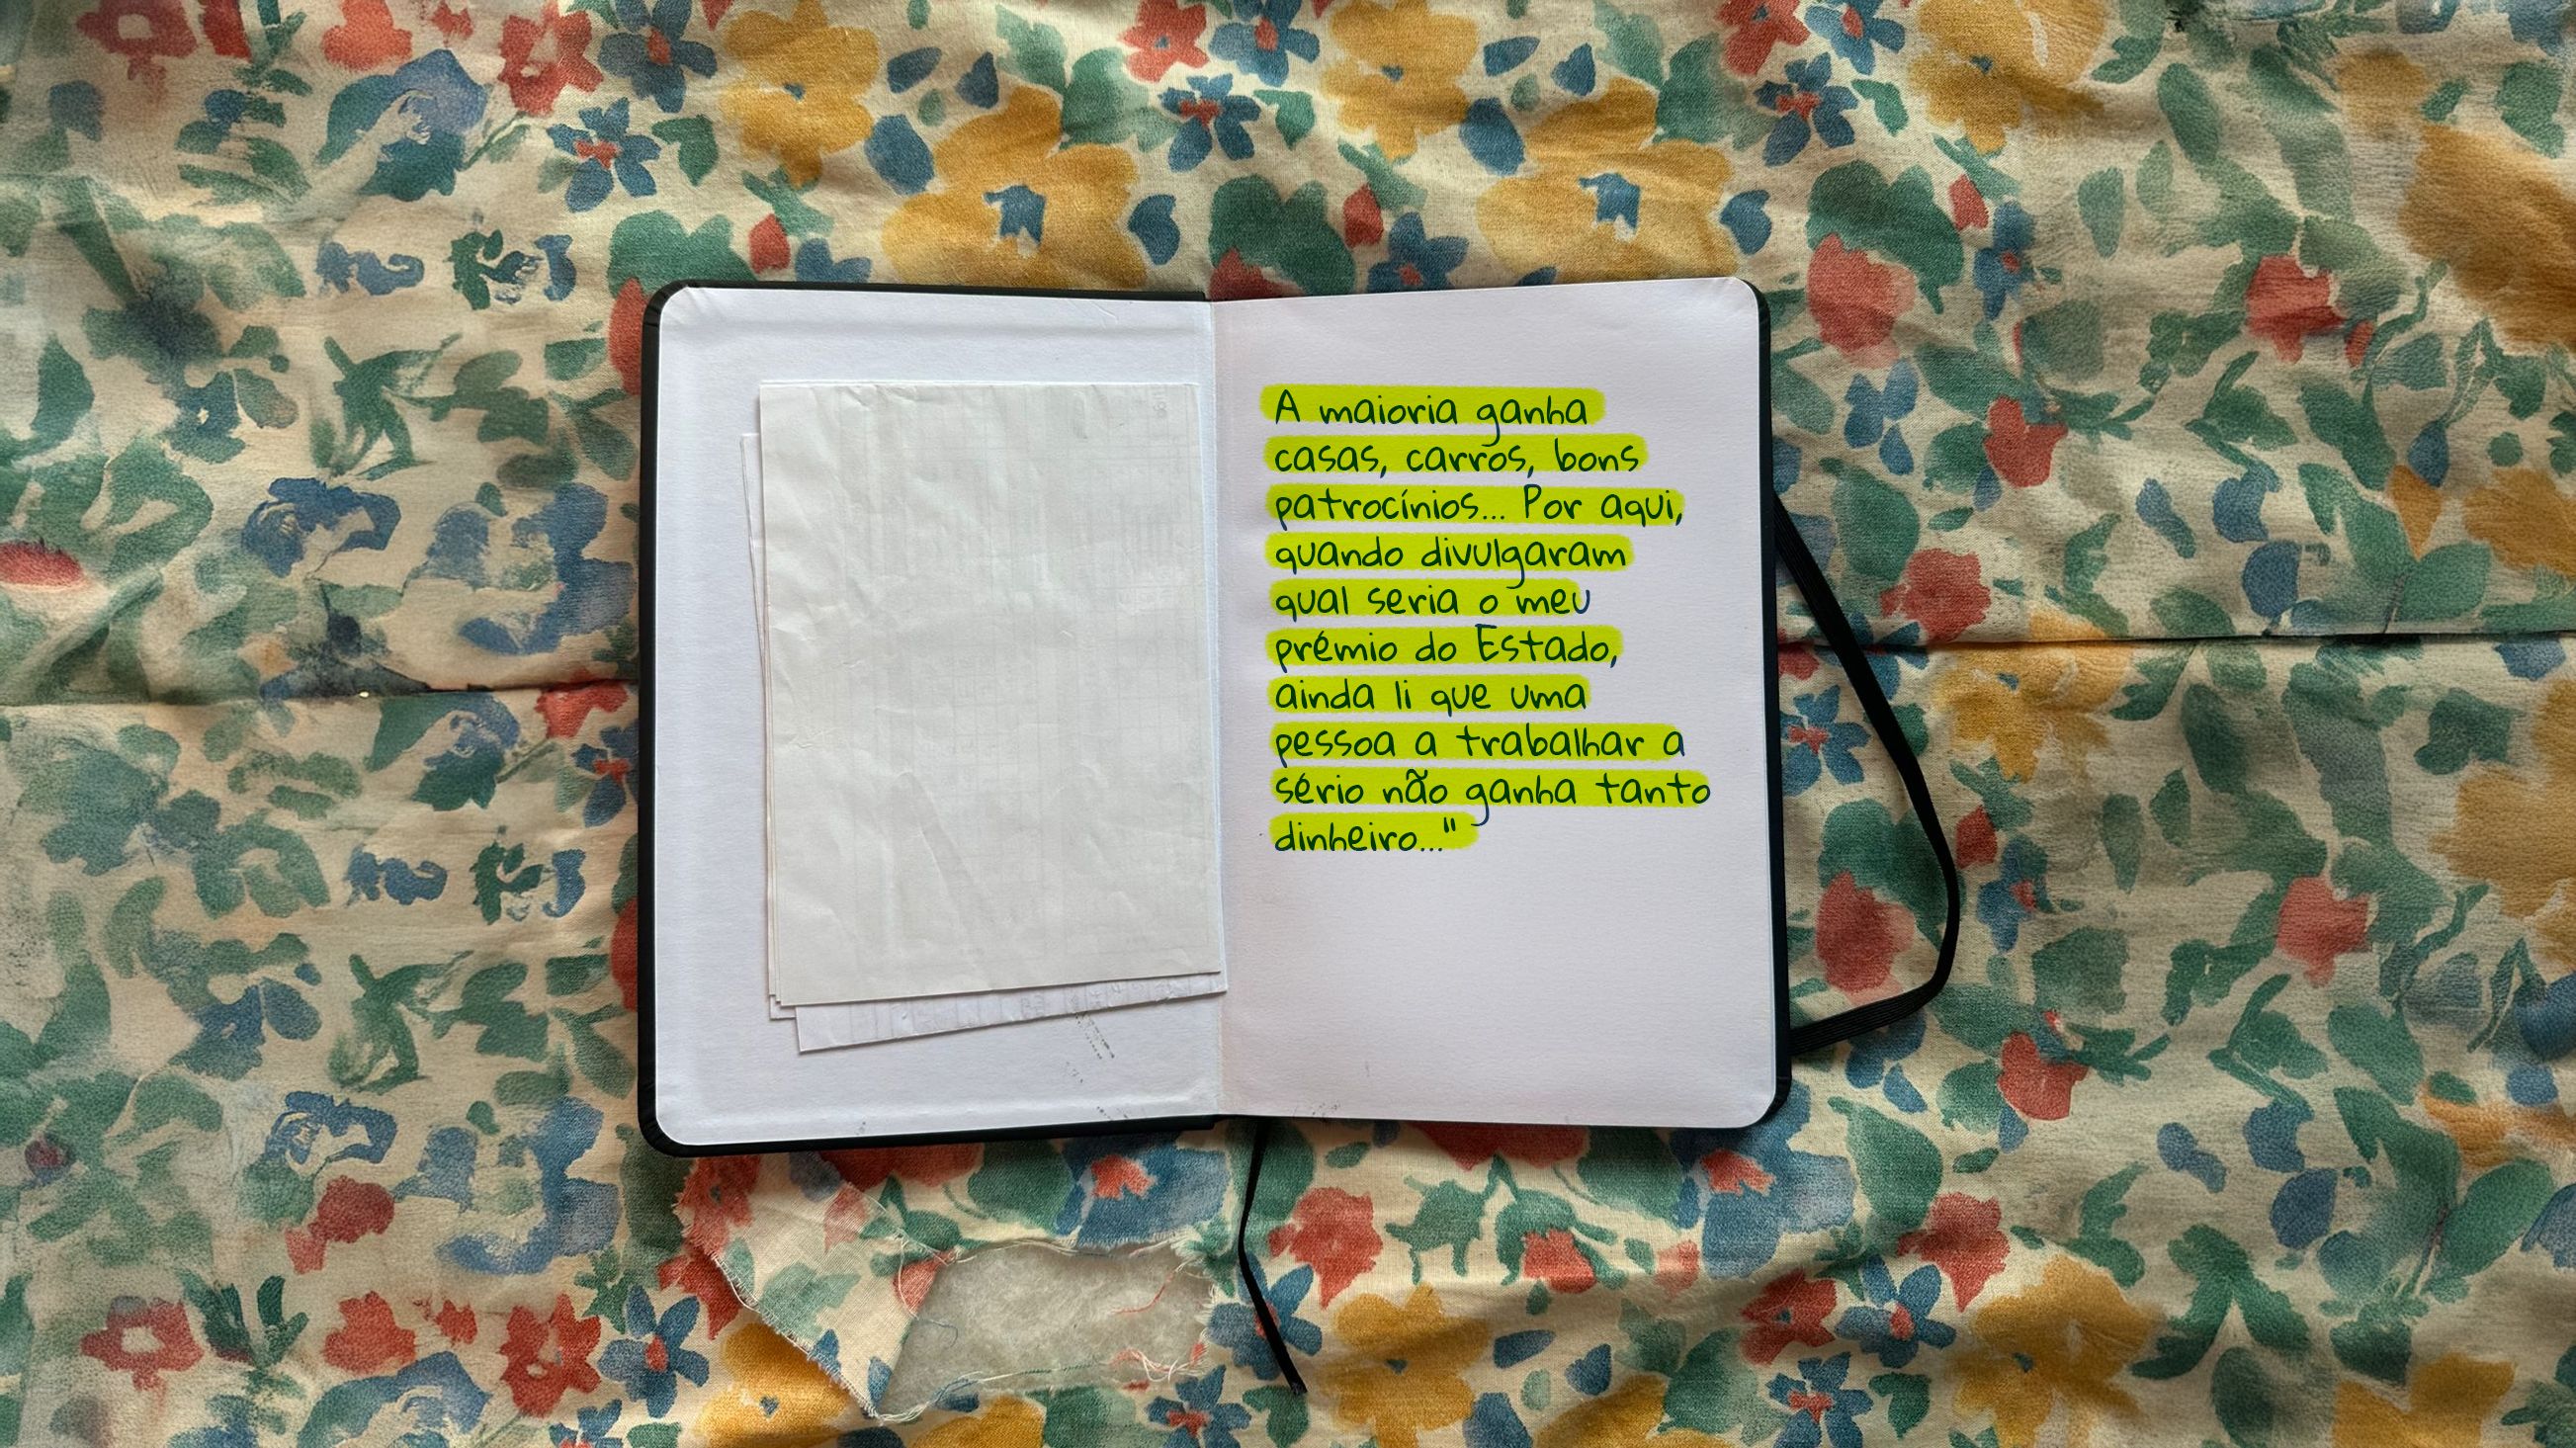 A maioria ganha
casas, carros, bons
patrocínios... Por aqui,
quando divulgaram
qual seria o meu
prémio do Estado,
ainda li que uma
pessoa a trabalhar a
sério não ganha tanto
dinheiro..."